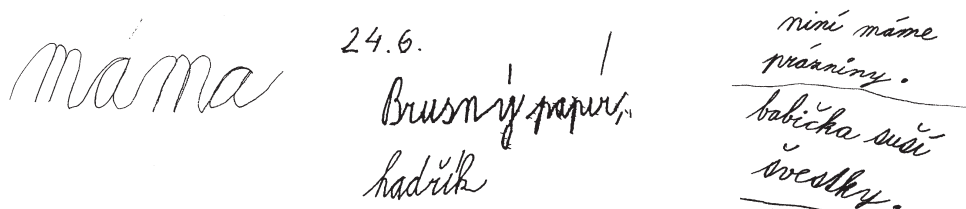 máma
24.6.
Brusný papír,
hadřík
niní máme
prázniny.
babička suší
švestky.